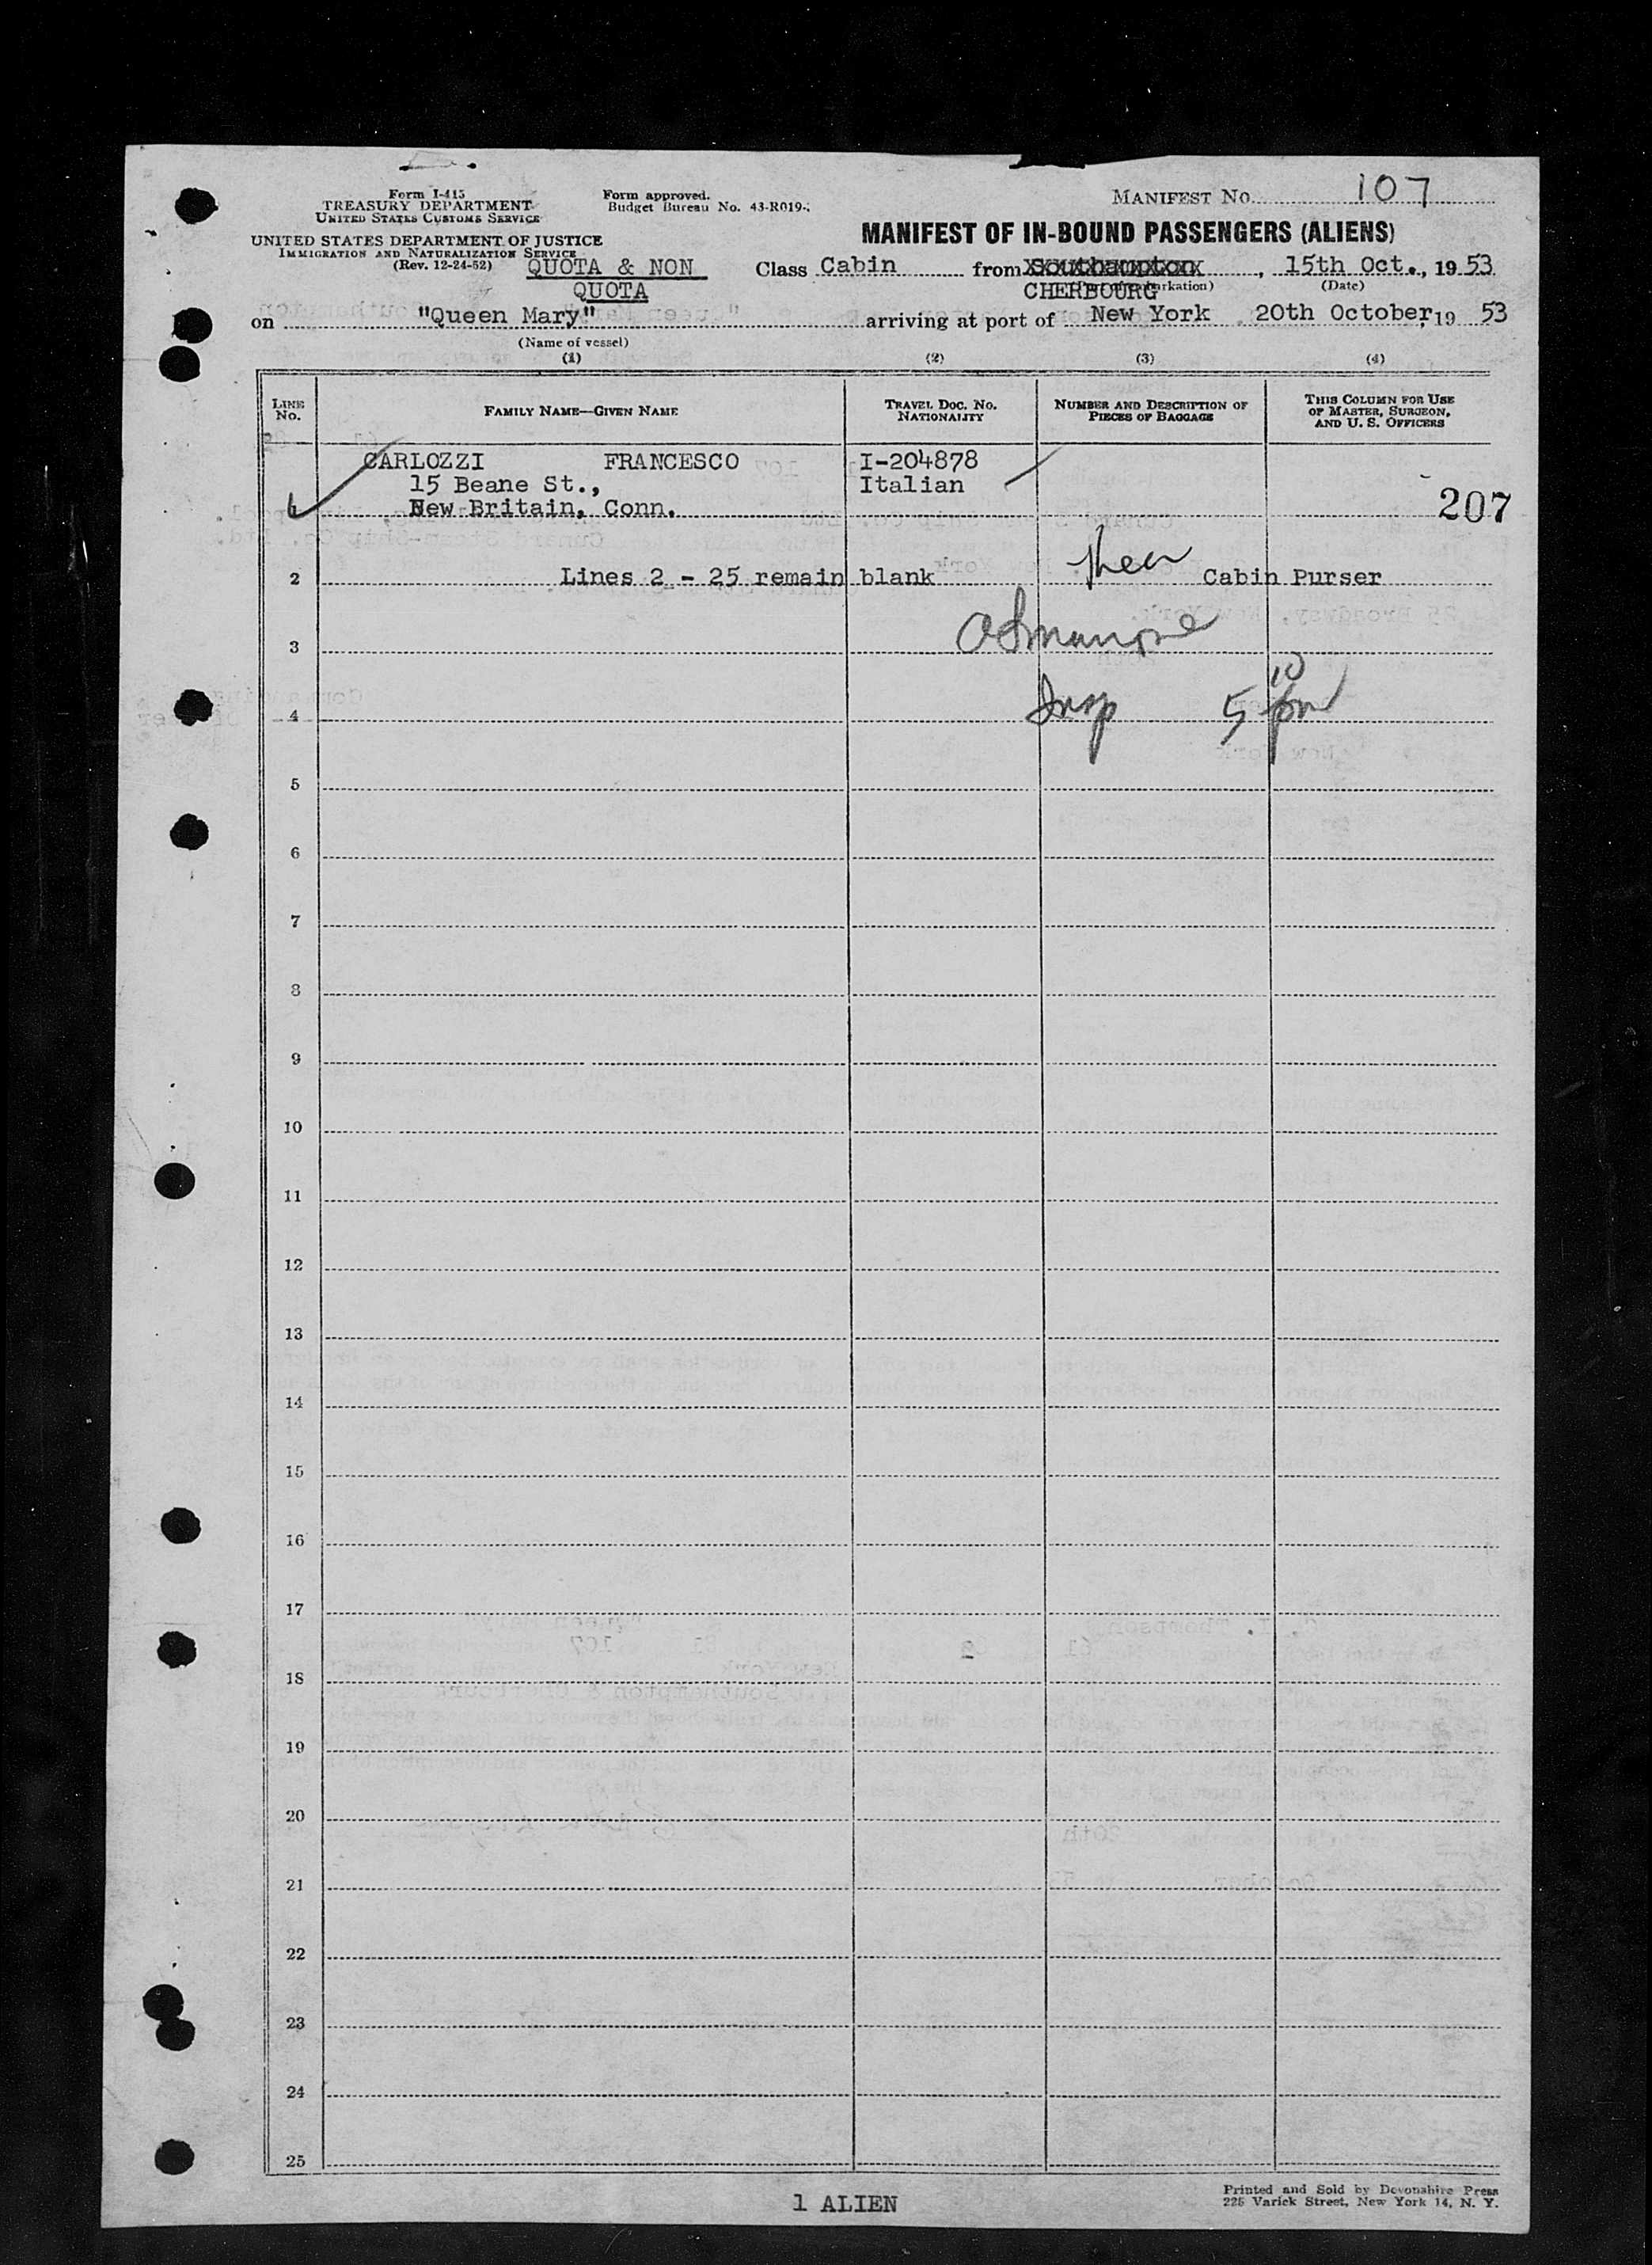 Form I-415
TREASURY DEPARTMENT
UNITED STATES CUSTOMS SERVICE
Form approved.
Budget Bureau No. 43-R019-
MANIFEST No. 107
UNITED STATES DEPARTMENT OF JUSTICE
IMMIGRATION AND NATURALIZATION SERVICE
(Rev. 12-24-52)
MANIFEST OF IN-BOUND PASSENGERS (ALIENS)
QUOTA & NON
QUOTA
Class Cabin from Southampton, 15th Oct., 1953
CHERBOURG (Date)
on "Queen Mary" arriving at port of New York 20th October, 1953
(Name of vessel)
(1) (2) (3) (4)
LINE No.
FAMILY NAME—GIVEN NAME
TRAVEL DOC. No. NATIONALITY
NUMBER AND DESCRIPTION OF PIECES OF BAGGAGE
THIS COLUMN FOR USE OF MASTER, SURGEON, AND U. S. OFFICERS
CARLOZZI FRANCESCO I-204878
15 Beane St., Italian
1 New Britain, Conn. 207
2 Lines 2 - 25 remain blank Cabin Purser
3
4 Insp 5 10 pm
5
6
7
8
9
10
11
12
13
14
15
16
17
18
19
20
21
22
23
24
25
1 ALIEN
Printed and Sold by Devonshire Press
225 Varick Street, New York 14, N. Y.